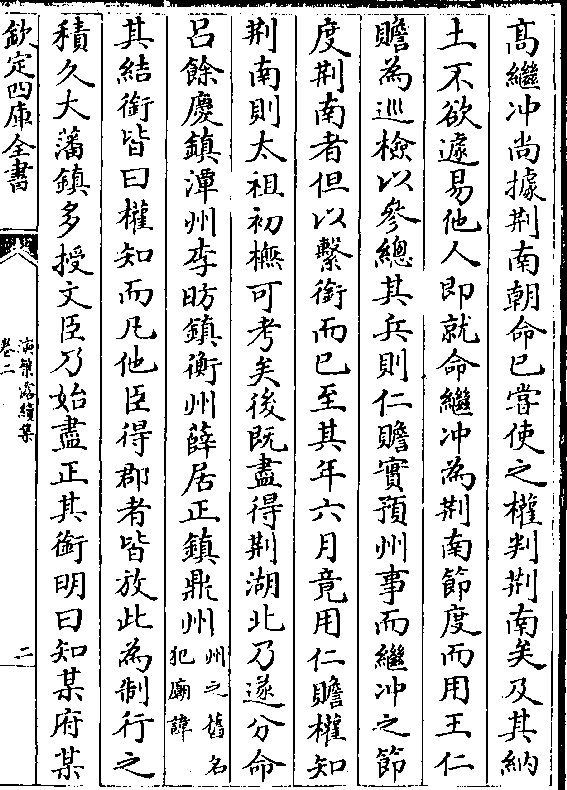 高繼冲尚據荆南朝命已嘗使之權判荆南矣及其納
土不欲遽易他人即就命繼冲為荆南節度而用王仁
贍為巡檢以參總其兵則仁贍實預州事而繼冲之節
度荆南者但以繫銜而已至其年六月竟用仁贍權知
荆南則太祖初橅可考矣後既盡得荆湖北乃遂分命
呂餘慶鎮潭州李昉鎮衡州薛居正鎮鼎州州之舊名犯廟諱
其結銜皆曰權知而凡他臣得郡者皆放此為制行之
積久大藩鎮多授文臣乃始盡正其銜明曰知某府某
欽定四庫全書
演繁露續集
卷二
二